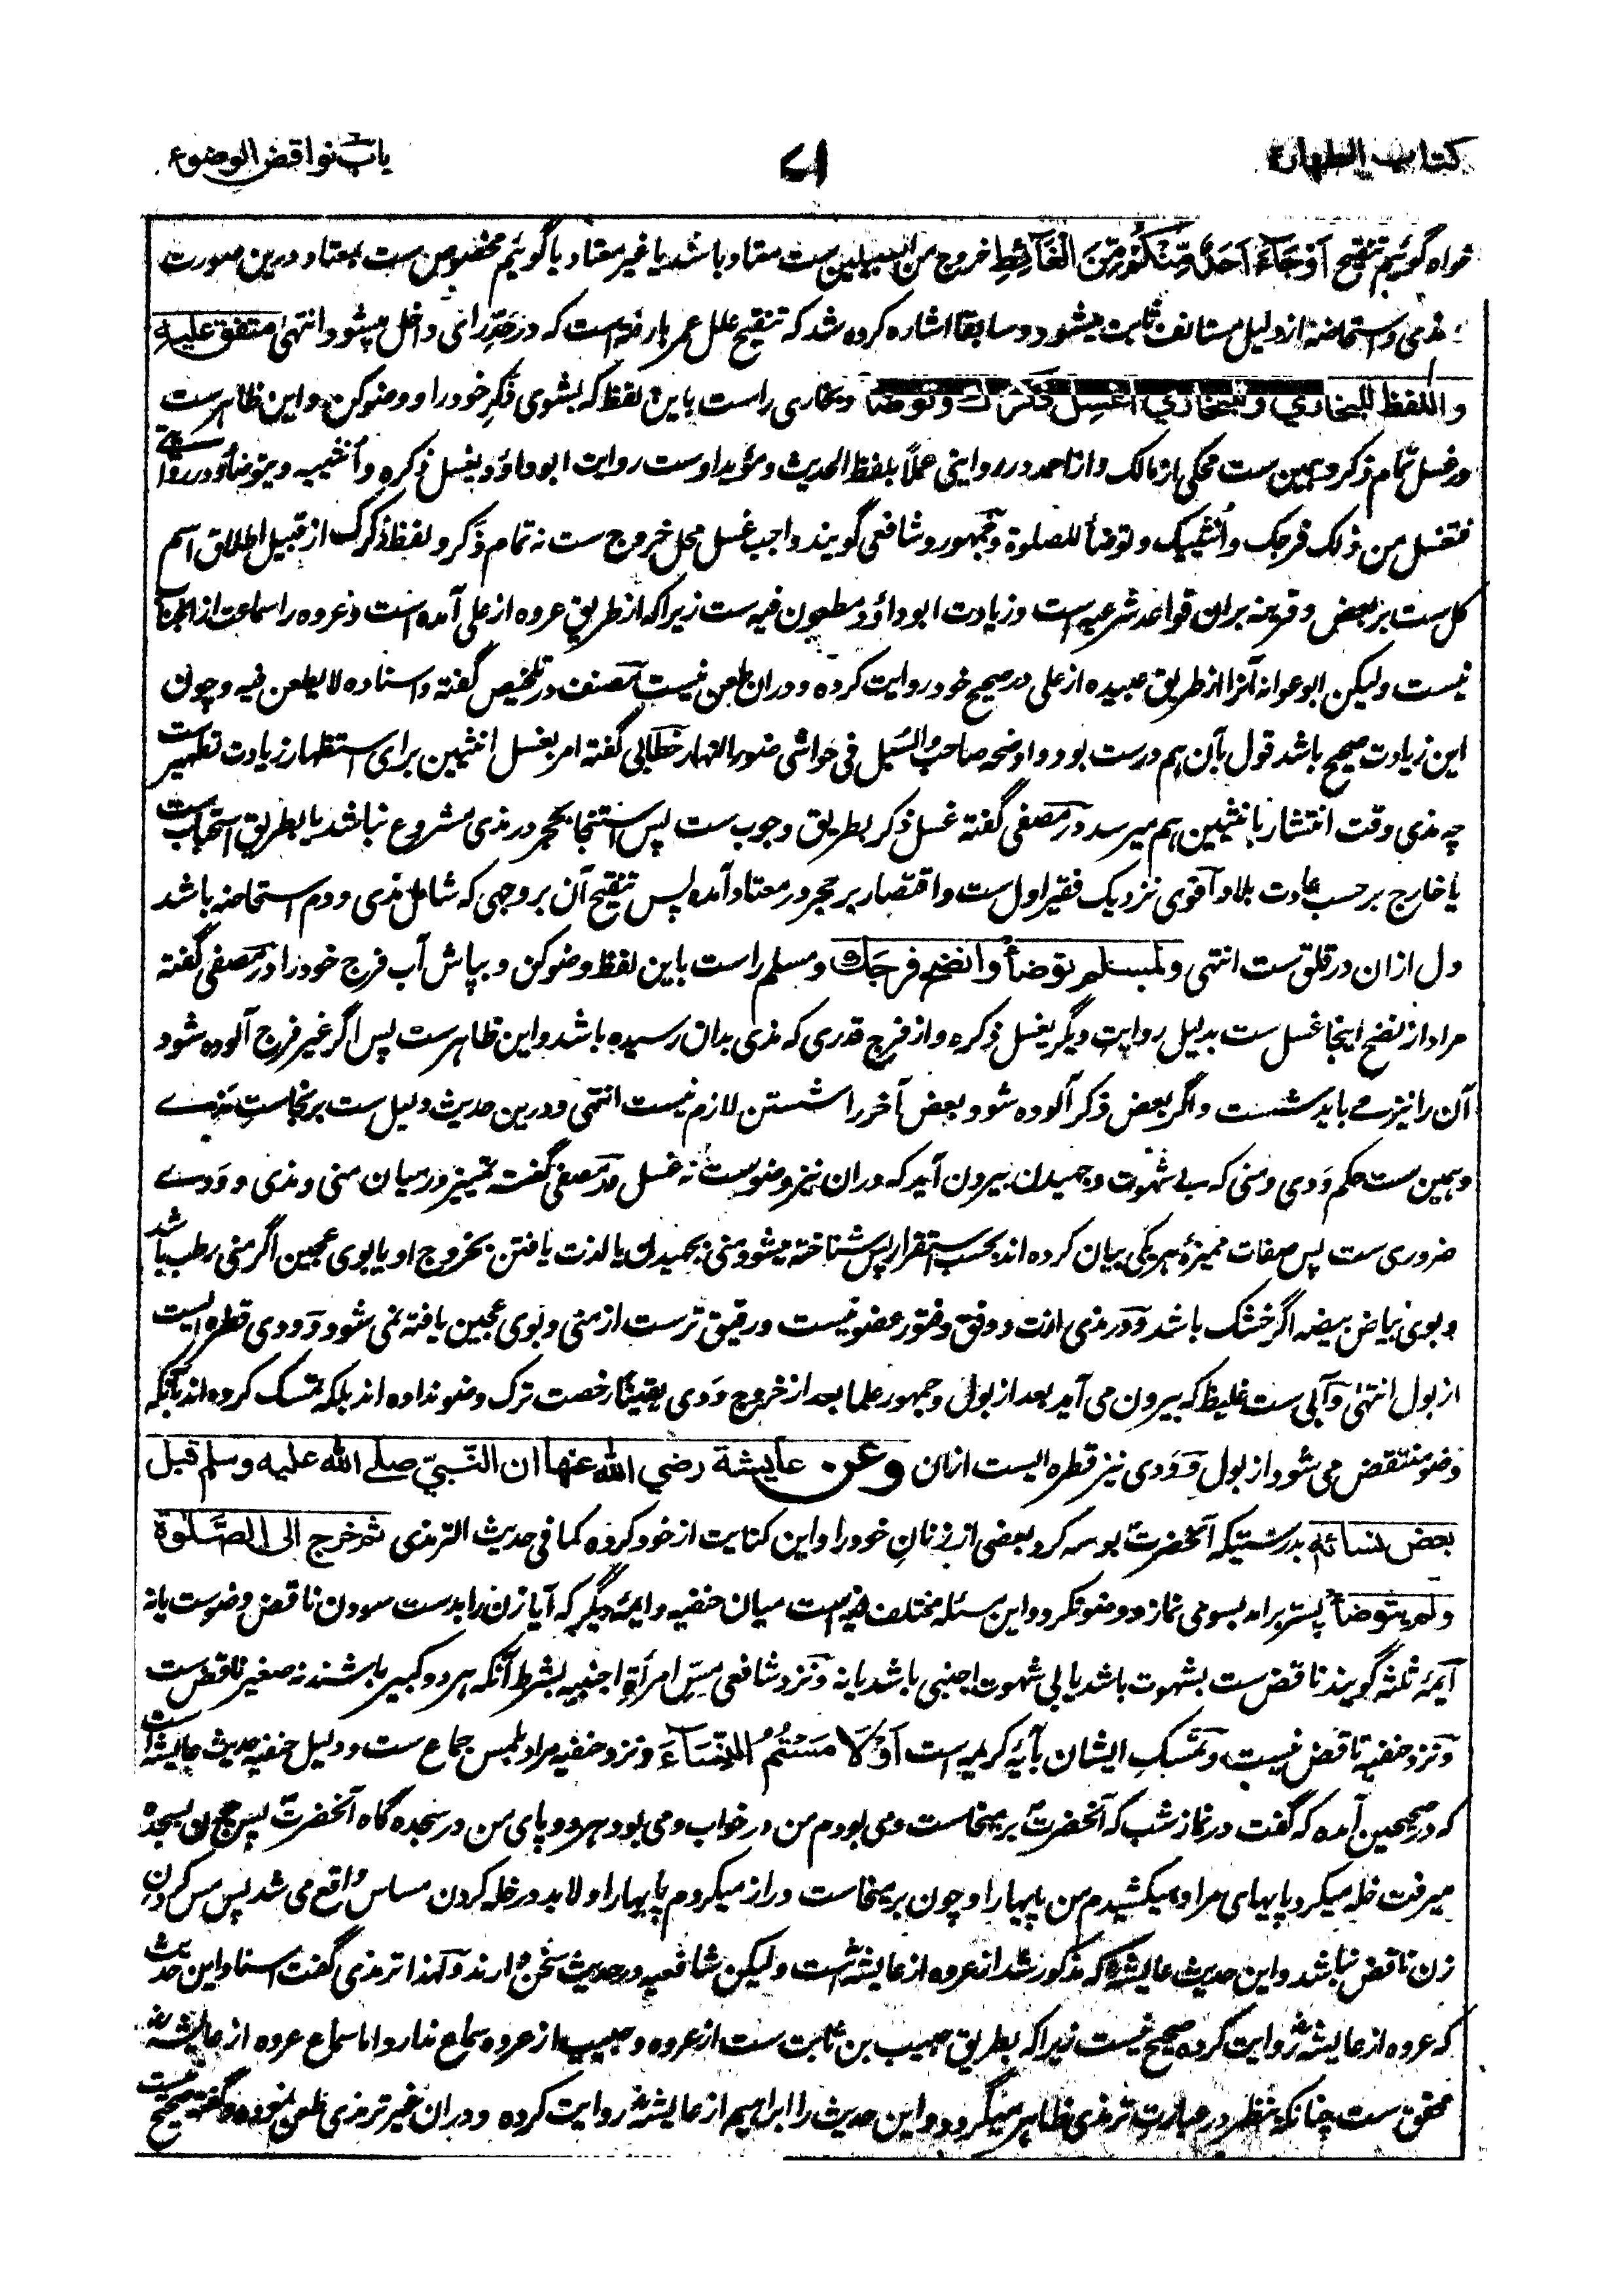 کتاب الطهارة
۷۱
باب نواقض الوضوء
خواه گوئیم تنقیح اَوْجَآءَ اَحَدٌ مِّنْكُمْ مِّنَ الْغَآئِطِ خروج من السبیلین ست معتاد باشد یا غیر معتاد یا گوئیم مخصوص ست بمعتاد و درین صورت
مذی و استحاضه از دلیل مستانف ثابت میشود و سابقا اشاره کرده شد که تنقیح علل عمر بار فیه است که در حد رانی داخل میشود انتهی متفق علیه
واللفظ للبخاري وللبخاري اغسل ذكرك وتوضأ و بخاری راست باین لفظ که بشوی ذکرِ خود را و وضو کن و این ظاهرست
در غسل تمام ذکر و همین ست محکی از مالک و از احمد در روایتی عملاً بلفظ الحدیث و مؤید اوست روایت ابوداؤد یغسل ذکره و أنثییه و یتوضأ و در روایتے
فتغسل من ذلک فرجک و أنثییک و توضأ للصلوة و جمهور و شافعی گویند واجب غسل محل خروج ست نه تمام ذَکر و لفظ ذکرک از قبیل اطلاق اسم
کل ست بر بعض و قرینه بران قواعد شرعیه است و زیادت ابوداؤد مطعون فیه ست زیرا که از طریق عروه از علی آمده است و عروه را سماعت از آنجناب
نیست ولیکن ابوعوانه آنرا از طریق عبیده از علی در صحیح خود روایت کرده و دران طعن نیست مصنف در تلخیص گفته و اسناده لا یطعن فیه و چون
این زیادت صحیح باشد قول بآن هم درست بود و اوضحه صاحب السّیل فی حواشی ضوء النهار خطابی گفته امر بغسل انثیین برای استظهار زیادت تطهیر ست
چه مذی وقت انتشار بانثیین هم میرسد در مصفی گفته غسل ذکر بطریق وجوب ست پس استنجا بحجر در مذی مشروع نباشد یا بطریق استحباب ست
یا خارج بر حسب عادت بلاد و اقوی نزدیک فقیر اول ست و اقتصار بر حجر در معتاد آمده پس تنقیح آن بر وجهی که شامل مذی و دم استحاضه باشد
دل ازان در قلق ست انتهی ولمسلم توضأ وانضح فرجك و مسلم راست باین لفظ وضو کن و بپاش آب فرج خود را در مصفی گفته
مراد از نضح اینجا غسل ست بدلیل روایت دیگر یغسل ذکره و از فرج قدری که مذی بدان رسیده باشد و این ظاهرست پس اگر غیر فرج آلوده شود
آن را نیز مے باید شست و اگر بعض ذکر آلوده شود بعض آخر را شستن لازم نیست انتهی و درین حدیث دلیل ست بر نجاست مذے
و همین ست حکم وَدی و منی که بے شهوت و جهیدن بیرون آید که دران نیز وضوست نه غسل در مصفی گفت تمییز در میان منی و مذی و وَدے
ضروری ست پس صفات ممیزۀ هر یکی بیان کرده اند بحسب استقرار پس شناخته میشود منی بجهیدن یا لذت یافتن بخروج او یا بوی عجین اگر منی رطب باشد
و بوی بیاض بیضه اگر خشک باشد و در مذی لذت و دفق و فتور عضو نیست و رقیق ترست از منی و بوی عجین یافته نمی شود و وَدی قطره ایست
از بول انتهی و آبی ست غلیظ که بیرون می آید بعد از بول و جمهور علما بعد از خروج وَدی یقیناً رخصت ترک وضو نداده اند بلکه تمسک کرده اند بآنکه
وضو منتقض می شود از بول و وَدی نیز قطره ایست ازان وعن عایشة رضي الله عنها ان النّبيّ صلے الله عليه وسلم قبل
بعض نسائه بدرستیکه آنحضرت بوسه کرد بعضی از زنانِ خود را و این کنایت از خود کرده کما فی حدیث الترمذی ثم خرج الى الصّلوة
ولم يتوضأ پستر برامد بسوی نماز و وضو نکرد و این مسئله مختلف فیه است میان حنفیه و ایمۀ دیگر که آیا زن را بدست سودن ناقض وضوست یا نه
ایمۀ ثلثه گویند ناقض ست بشهوت باشد یا بی شهوت اجنبی باشد یا نه و نزد شافعی مسِّ امرأۃ اجنبیه بشرط آنکه هر دو کبیر باشند نه صغیر ناقض ست
و نزد حنفیه ناقض نیست و تمسّک ایشان بآیۀ کریمه است اَوْ لَامَسْتُمُ النِّسَآءَ و نزد حنفیه مراد بلمس جماع ست و دلیل حنفیه حدیث عایشه است
که در صحیحین آمده که گفت در نماز شب که آنحضرت بر میخاست و می بودم من در خواب و می بود هر دو پای من در سجده گاه آنحضرت پس چون بسجده
میرفت خله میکرد پایهای مرا و میکشیدم من پایها را و چون بر میخاست دراز میکردم پایها را و لابد در خله کردن مساس واقع می شد پس مس کردن
زن ناقض نباشد و این حدیث عایشه که مذکور شد از عروه از عایشه است ولیکن شافعیه در حدیث سخن دارند و لهذا ترمذی گفت اسناد این حدیث
که عروه از عایشه روایت کرده صحیح نیست زیرا که بطریق حبیب بن ثابت ست از عروه و حبیب از عروه سماع ندارد اما سماع عروه از عایشه
محقق ست چنانکه بنظر در عبارت ترمذی ظاهر میگردد و این حدیث را ابراهیم از عایشه روایت کرده و دران غیر ترمذی طعن نموده و گفته صحیح نیست